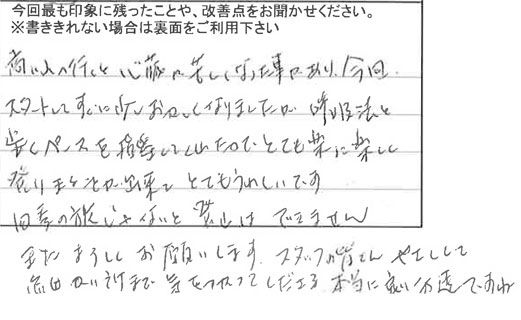 今回最も印象に残ったことや、改善点をお聞かせください。
※書ききれない場合は裏面をご利用下さい
高い山へ行くと心臓が苦しくなった事があり、今回
スタートしてすぐに少しおかしくなりましたが 呼吸法と
歩くペースを指導してくれたのでとても楽に楽しく
登りますことが出来て とてもうれしいです
四季の旅じゃないと 登山は できません
またよろしくお願いします。スタッフの皆さん やさしくて
細かい所まで 気をつかってくださる 本当に良い